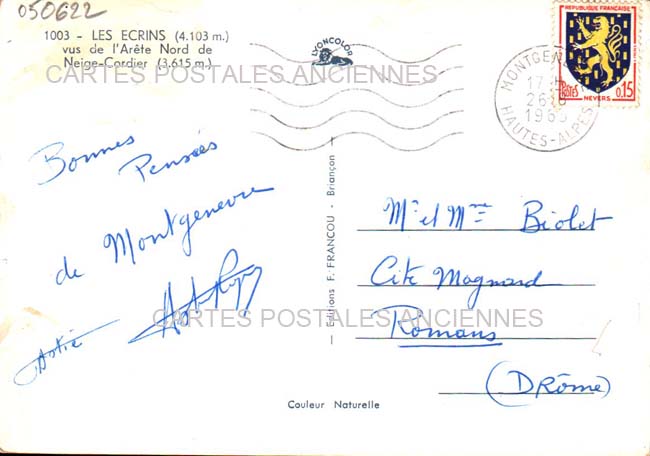 050622
1003 - LES ECRINS (4.103 m.)
vus de l'Arête Nord de
Neige-Cordier (3.615 m.)
CARTES POSTALES ANCIENNES
LYONCOLOR
REPUBLIQUE FRANÇAISE
POSTES
0,15
NEVERS
MONTGEN
17 H
26
196
HAUTES-ALPES
Bonnes
Pensées
de Montgenevre
Editions F. FRANCOU - Briançon
Mr et Mme Biolet
Cité Magnard
Romans
(DRÔME)
CARTES POSTALES ANCIENNES
Couleur Naturelle